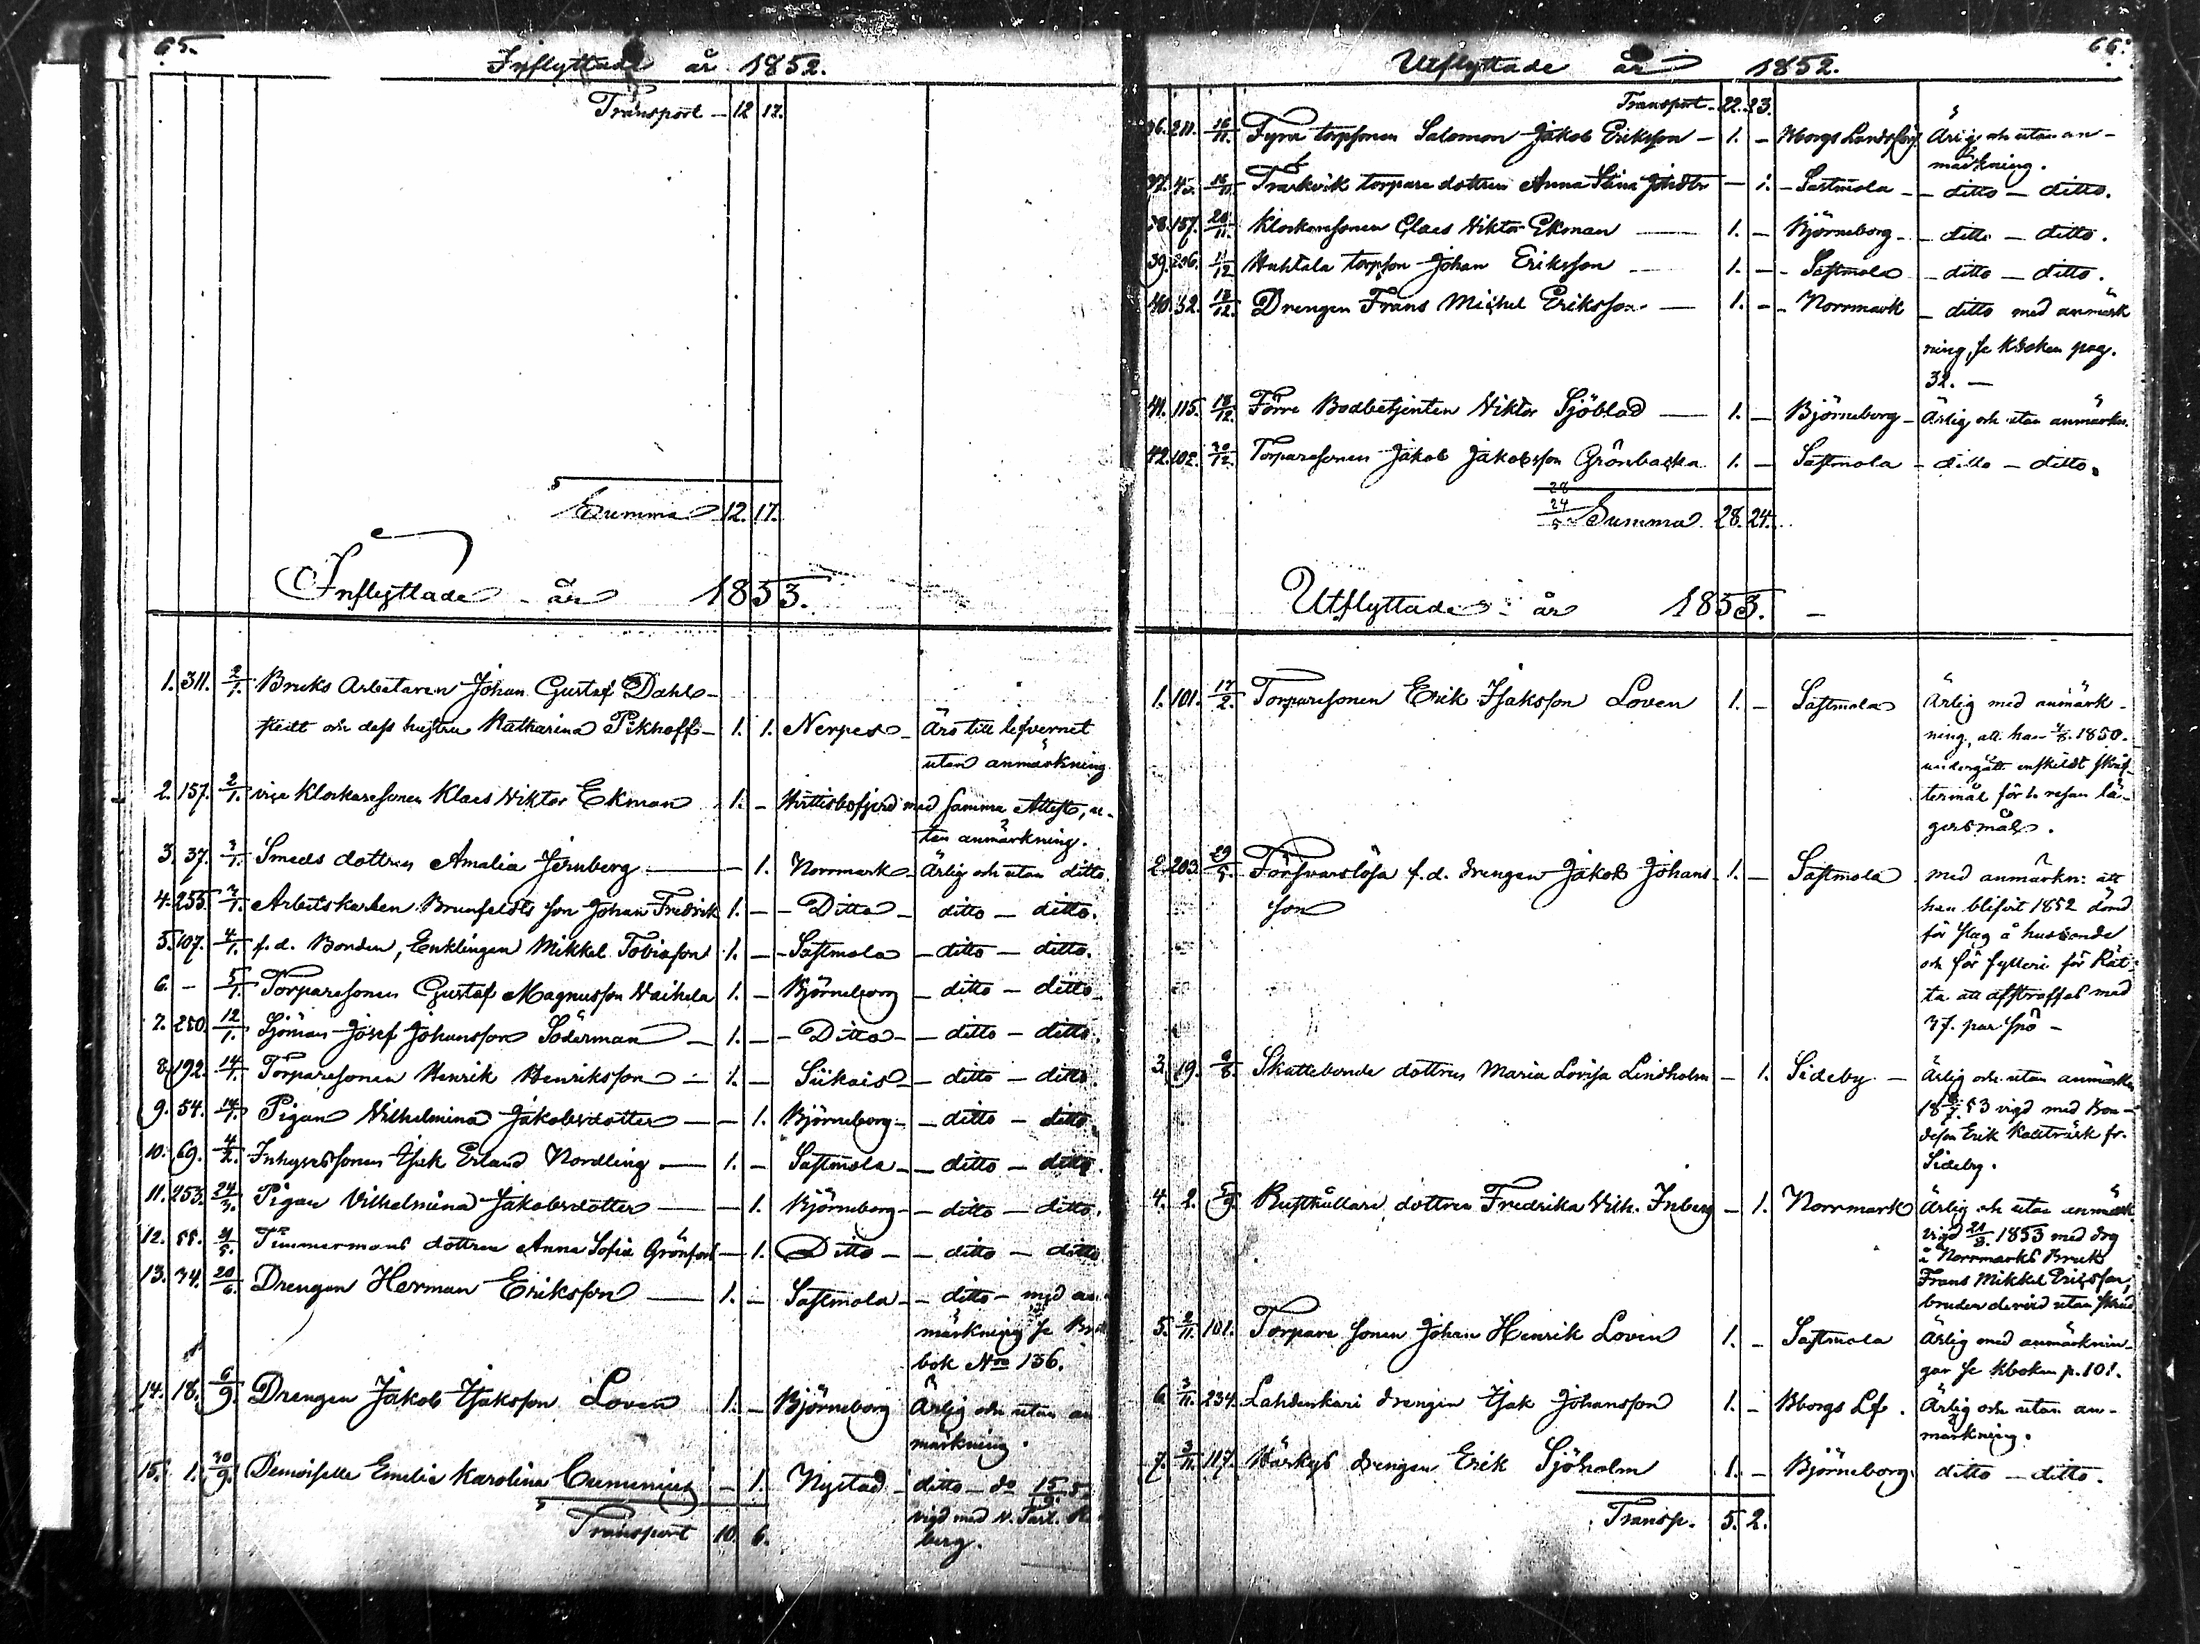 65.
Inflyttade år 1852.
Transport – 12 17.
Summa 12. 17.
Inflyttade år 1853.
1. 311. 2/1. Bruks Arbetaren Johan Gustaf Dahl-
stedt och dess hustru Katharina Pikhoff – 1. 1. Nerpes – Äro till lefvernet
utan anmärkning
2. 157. 2/1. vice Klockaresonen Klaes Viktor Ekman 1. – med samma Attest, u-
tan anmärkning.
3. 37. 3/1. Smeds dottren Amalia Jernberg – 1. Norrmark – Ärlig och utan ditto
4. 255. 3/1. Arbetskarlen Brunfeldts son Johan Fredrik 1. – – Ditto – ditto – ditto.
5. 107. 4/1. f.d. Bonden, Enklingen Mikkel Tobiasson 1. – – Sastmola – ditto – ditto.
6. – 5/1. Torparesonen Gustaf Magnusson Vaihela 1. – Björneborg – ditto – ditto
7. 250. 12/1. Sjöman Josef Johansson Söderman – 1. – – Ditto – – ditto – ditto.
8. 192. 14/1. Torparesonen Henrik Henriksson – 1. – Siikais – ditto – ditto
9. 54. 14/1. Pigan Vilhelmina Jakobsdotter – – 1. Björneborg – – ditto – ditto
10. 69. 4/2. Inhysessonen Isak Erland Nordling – 1. – Sastmola – – ditto – ditto.
11. 253. 24/3. Pigan Vilhelmina Jakobsdotter – – 1. Björneborg – – ditto – ditto.
12. 55. 4/5. Timmermans dottren Anna Sofia Grönfors – 1. Ditto – – ditto – ditto
13. 34. 20/6. Drengen Herman Eriksson – 1. – Sastmola – – ditto – med an-
märkning se
bok No 136.
14. 18. 6/9. Drengen Jakob Isaksson Loven 1. – Björneborg Ärlig och utan an
märkning.
15. 1. 30/9. Demoiselle Emelie Karolina Cumenius – 1. Nystad – ditto – do 15/9
vigd med
berg.
Transport 10. 6.
66.
Utflyttade år 1852.
Transport – 22. 23.
36. 211. 16/11. Fyra torpsonen Salomon Jakob Eriksson – 1. – Bborgs Landsförs. Ärlig och utan an-
märkning.
37. 45. 16/11. torpare dottren Anna Stina – 1. – Sastmola – – ditto – ditto.
38. 157. 20/11. Klockaresonen Claes Viktor Ekman – 1. – Björneborg – – ditto – ditto.
39. 206. 11/12. Huhtala torpson Johan Eriksson – 1. – – Sastmola – ditto – ditto.
40. 32. 13/12. Drengen Frans Michel Eriksson – 1. – – Norrmark – ditto med anmärk
ning, se Kboken pag.
32. –
41. 115. 18/12. Förre Bodbetjenten Viktor Sjöblad – 1. – Björneborg – Ärlig och utan anmärkn.
42. 102. 20/12. Torparesonen Jakob Jakobsson Grönbacka 1. – Sastmola – ditto – ditto.
28
24
5
Summa 28. 24.
Utflyttade år 1853. –
1. 101. 17/2. Torparesonen Erik Isaksson Loven 1. – Sastmola Ärlig med anmärk-
ning, att han 1850.
undergått enskildt skrif-
termål för 1. resan lä-
gersmål.
2. 203. 29/5. Försvarslösa f.d. drengen Jakob Johans 1. – Sastmola med anmärkn: att
son han blifvit 1852 dömd
för slag å husbonde
och för fylleri för Rät-
ta att afstraffas med
37. par spö –
3. 19. Skattebonde dottren Maria Lovisa Lindholm – 1. Sideby – Ärlig och utan anmärkn
53 vigd med Bon-
deson Erik fr.
Sideby.
4. 2. Rusthållare dottren Fredrika Vilh. Inberg – 1. Norrmark Ärlig och utan anmärk
vigd 1853 med drg
i Norrmarks Bruk
Frans Mikkel Eriksson,
bruden utan
5. 2/11. 101. Torpare sonen Johan Henrik Loven 1. – Sastmola Ärlig med anmärknin-
gar se kboken p. 101.
6. 3/11. 234. Lahdenkari drengen Isak Johansson 1. – Bborgs Lf. Ärlig och utan an-
märkning.
7. 3/11. 117. drengen Erik Sjöholm 1. – Björneborg. ditto – ditto.
Transp. 5. 2.